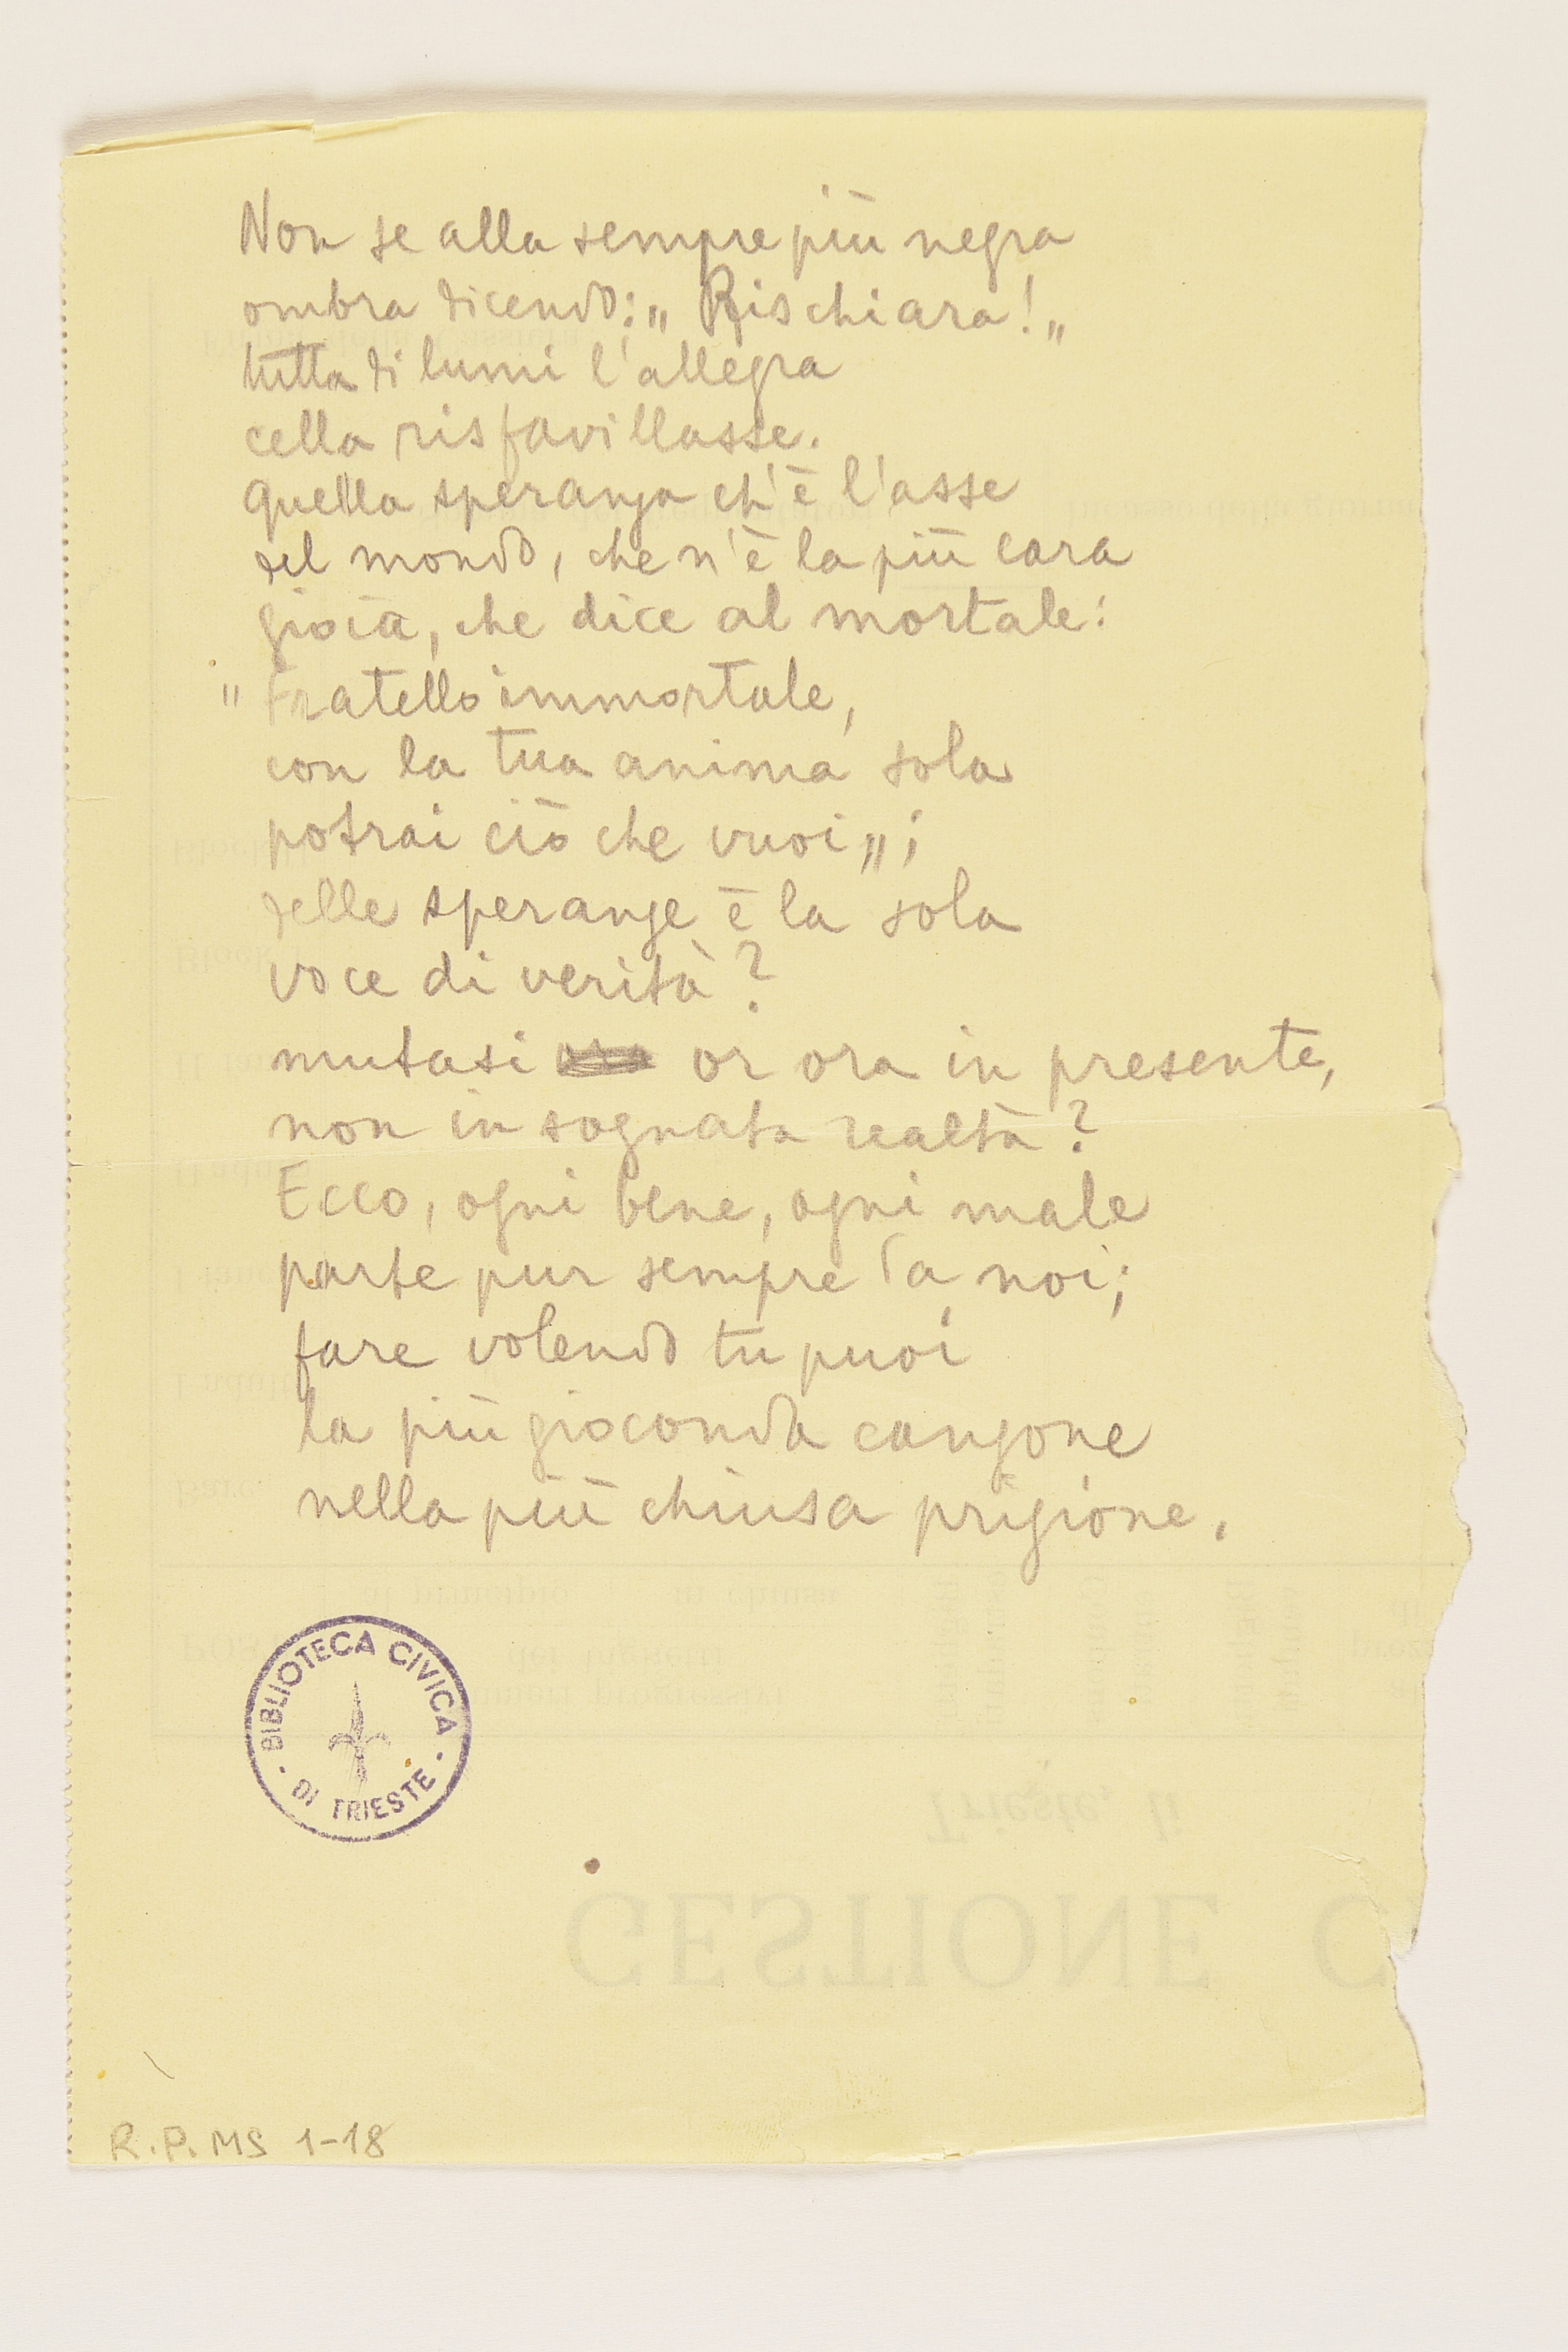 Non se alla sempre più negra
ombra dicendo: „ Rischiara! „
tutta di lumi l'allegra
cella risfavillasse.
Quella speranza ch'è l'asse
del mondo, che n'è la più cara
gioia, che dice al mortale:
" Fratello immortale,
con la tua anima sola
potrai ciò che vuoi „;
delle speranze è la sola
voce di verità?
mutasi or ora in presente,
non in sognata realtà?
Ecco, ogni bene, ogni male
parte pur sempre da noi;
fare volendo tu puoi
la più gioconda canzone
nella più chiusa prigione.
BIBLIOTECA CIVICA
· DI TRIESTE ·
Trieste, li
GESTIONE C
R.P. MS 1-18